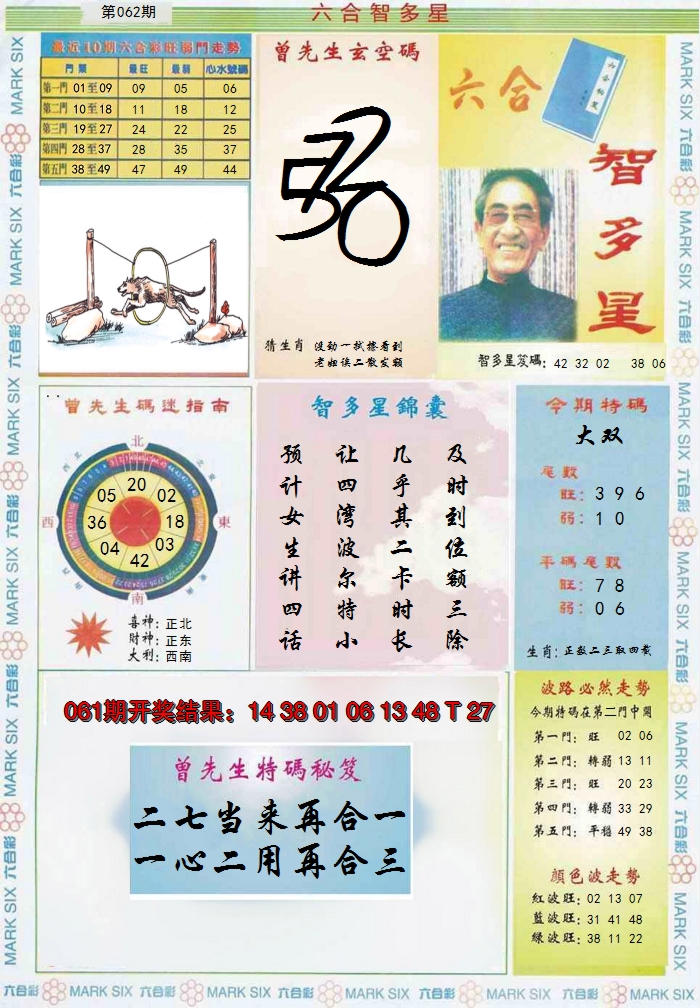 第062期
六合智多星
最近10期六合彩旺弱門走勢
門類 最旺 最弱 心水號碼
第一門 01至09 09 05 06
第二門 10至18 11 18 12
第三門 19至27 24 22 25
第四門 28至37 28 35 37
第五門 38至49 47 49 44
曾先生玄空碼
猜生肖 没劲一拭擦看到
老姐误二散发额
六合
智多星
智多星笈碼: 42 32 02 38 06
曾先生碼迷指南
北
西
東
南
20
02
18
03
42
04
36
05
喜神: 正北
財神: 正东
大利: 西南
智多星錦囊
及时到位额三除
几乎其二卡时长
让四湾波尔特小
预计女生讲四话
今期特碼
大双
尾數
旺: 3 9 6
弱: 1 0
平碼尾數
旺: 7 8
弱: 0 6
生肖: 正数二三取四载
061期开奖结果：14 38 01 06 13 48 T 27
曾先生特碼秘笈
二七当来再合一
一心二用再合三
波路必然走勢
今期特碼在第二門中開
第一門: 旺 02 06
第二門: 轉弱 13 11
第三門: 旺 20 23
第四門: 轉弱 33 29
第五門: 平穩 49 38
顔色波走勢
紅波旺: 02 13 07
藍波旺: 31 41 48
綠波旺: 38 11 22
六合彩 MARK SIX 六合彩 MARK SIX 六合彩 MARK SIX 六合彩 MARK SIX 六合彩 MARK SIX